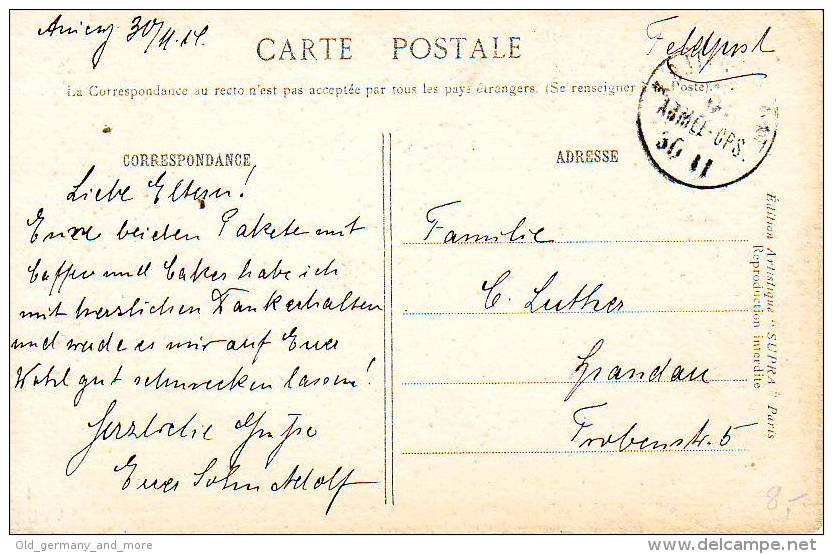 Anizy 30/11.14.
CARTE POSTALE
Feldpost
La Correspondance au recto n'est pas acceptée par tous les pays étrangers. (Se renseigner à la Poste).
ARMEE-CPS.
30 11
CORRESPONDANCE
ADRESSE
Liebe Eltern!
Eure beiden Pakete mit
Caffee und Cakes habe ich
mit herzlichen Dank erhalten
und werde es mir auf Euer
Wohl gut schmecken lassen!
Herzliche Grüße
Euer Sohn Adolf
Familie
C. Luther
Spandau
Frobenstr. 5
Édition Artistique "SUPRA" Paris
Reproduction interdite
8,-
Old_germany_and_more
delcampe.net